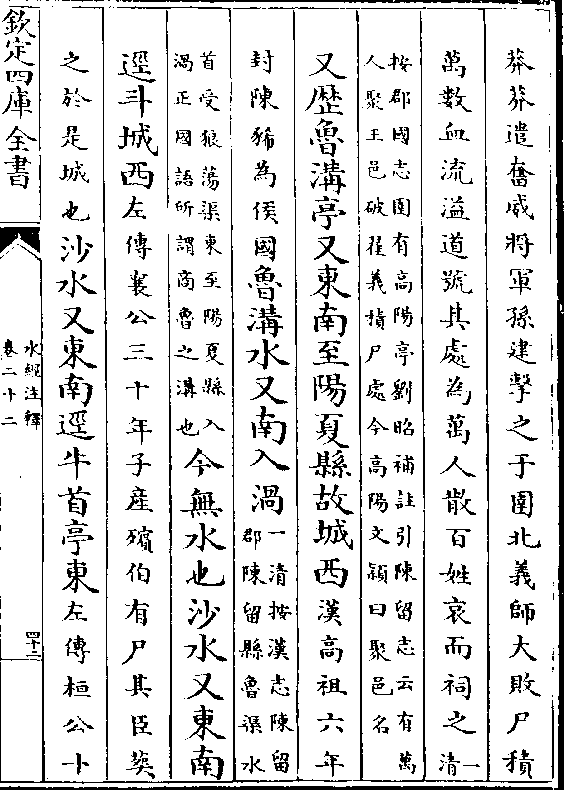 莽莽遣奮威將軍孫建擊之于圉北義師大敗尸積
萬數血流溢道號其處為萬人散百姓哀而祠之一清
按郡國志圉有高陽亭劉昭補註引陳留志云有萬
人聚王邑破翟義積尸處今高陽文潁曰聚邑名
又歴魯溝亭又東南至陽夏縣故城西漢高祖六年
封陳豨為侯國魯溝水又南入渦一清按漢志陳留
郡陳留縣魯渠水
首受狼蕩渠東至陽夏縣入
渦正國語所謂商魯之溝也今無水也沙水又東南
逕斗城西左傳襄公三十年子産殯伯有尸其臣葵
之於是城也沙水又東南逕牛首亭東左傳桓公十
欽定四庫全書
水經注釋
卷二十二
四十三